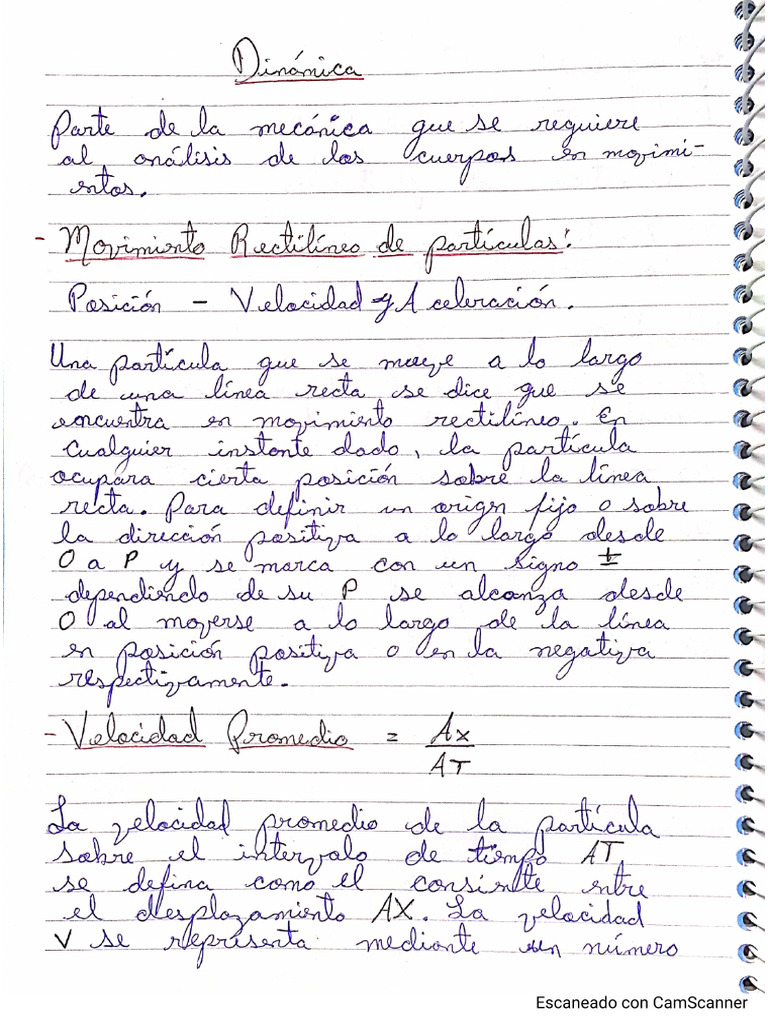 Dinámica
Parte de la mecánica que se requiere
al análisis de los cuerpos en movimi-
entos.
- Movimiento Rectilíneo de partículas:
Posición - Velocidad y Aceleración.
Una partícula que se mueve a lo largo
de una línea recta se dice que se
encuentra en movimiento rectilíneo. En
cualquier instante dado, la partícula
ocupara cierta posición sobre la línea
recta. Para definir un origen fijo o sobre
la dirección positiva a lo largo desde
O a P y se marca con un signo ±
dependiendo de su P se alcanza desde
O al moverse a lo largo de la línea
en posición positiva o en la negativa
respectivamente.
- Velocidad Promedio = AX
AT
La velocidad promedio de la partícula
sobre el intervalo de tiempo AT
se defina como el entre
el desplazamiento AX. La velocidad
V se representa mediante un número
Escaneado con CamScanner